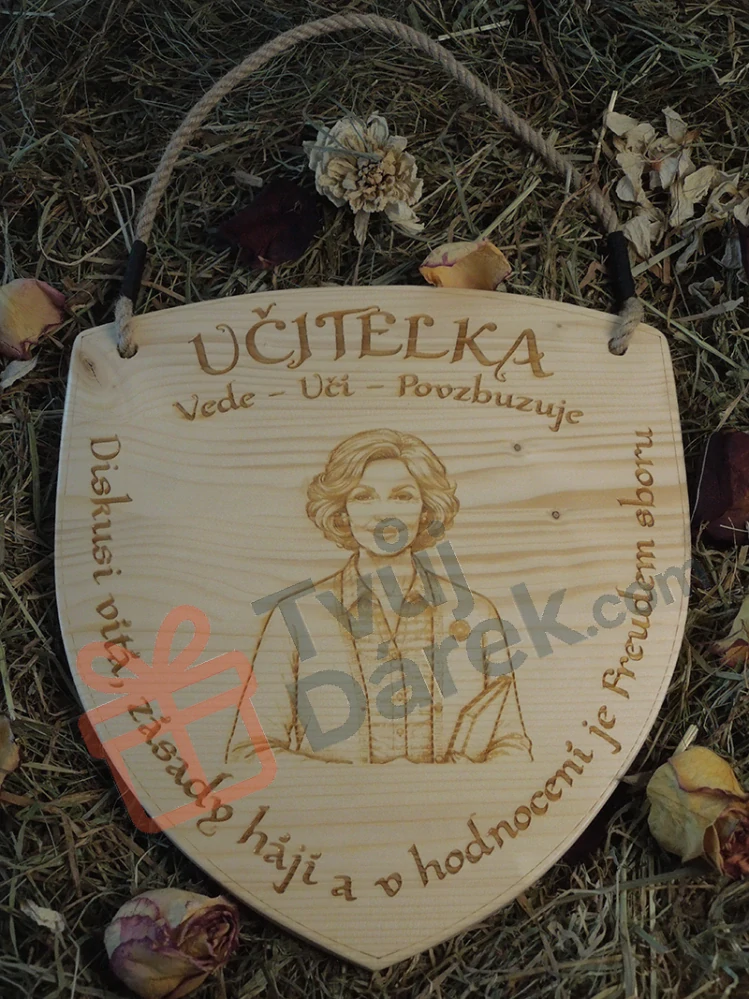 UČITELKA
Vede - Učí - Povzbuzuje
Diskusi vítá, zásady hájí a v hodnocení je Freudem sboru
Tvůj
Dárek.com